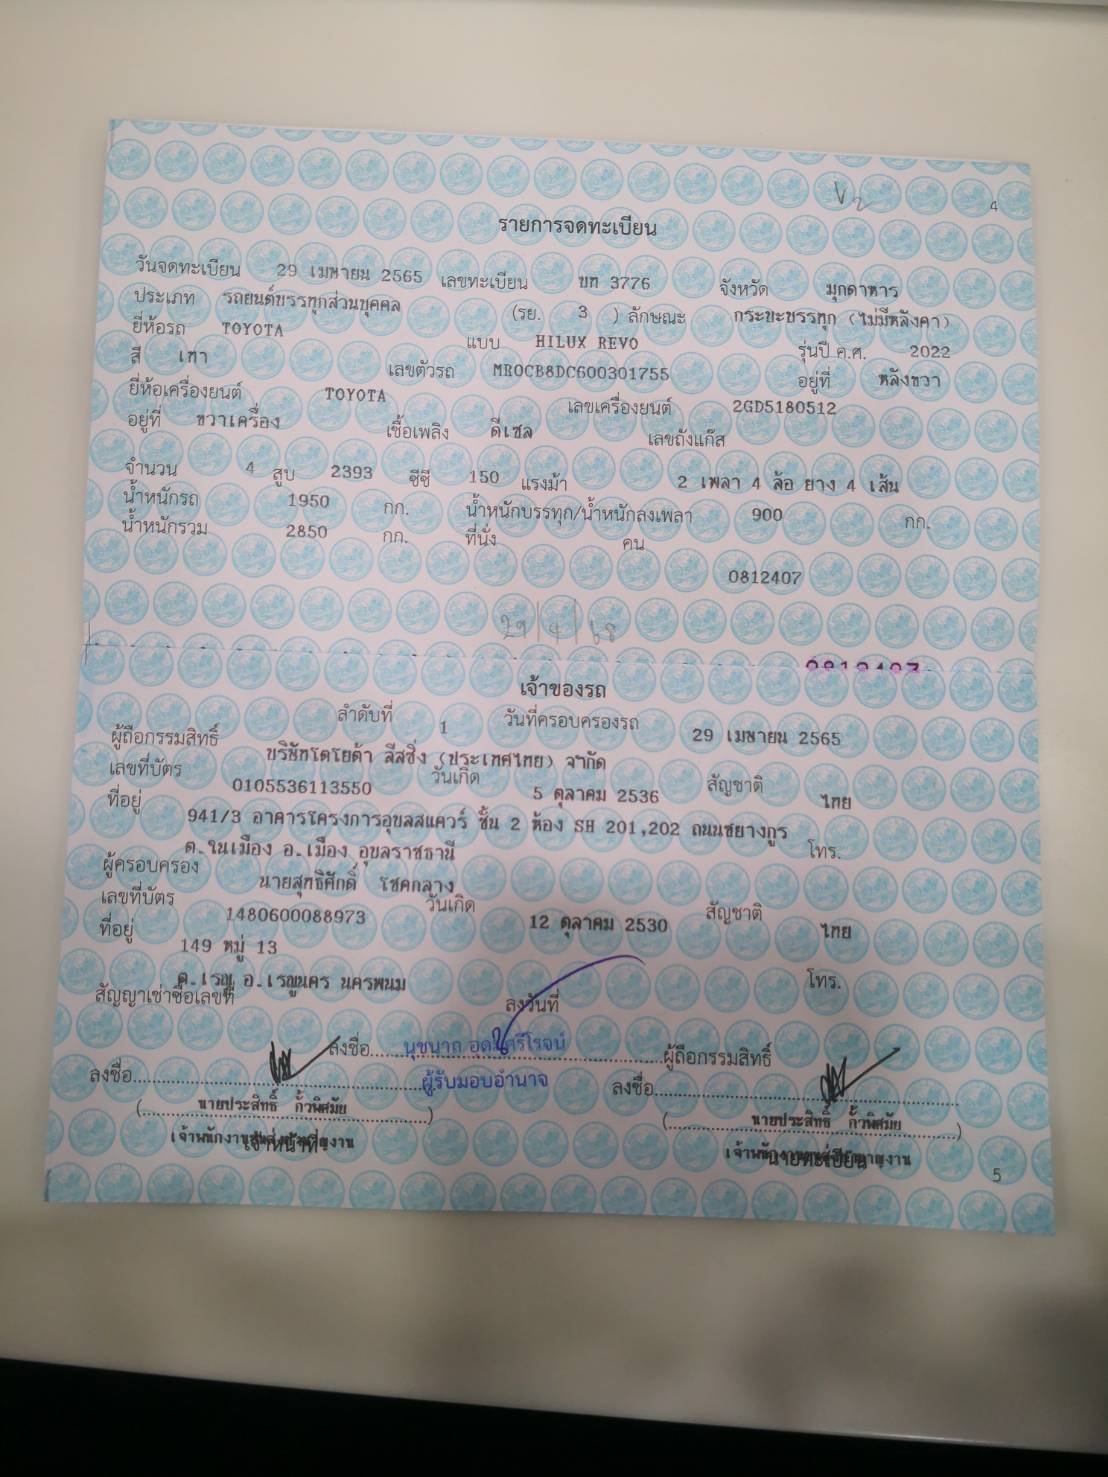 4
รายการจดทะเบียน
วันจดทะเบียน 29 เมษายน 2565 เลขทะเบียน บท 3776 จังหวัด มุกดาหาร
ประเภท รถยนต์บรรทุกส่วนบุคคล (รย. 3 ) ลักษณะ กระบะบรรทุก (ไม่มีหลังคา)
ยี่ห้อรถ TOYOTA แบบ HILUX REVO รุ่นปี ค.ศ. 2022
สี เทา เลขตัวรถ MR0CB8DC600301755 อยู่ที่ หลังขวา
ยี่ห้อเครื่องยนต์ TOYOTA เลขเครื่องยนต์ 2GD5180512
อยู่ที่ ขวาเครื่อง เชื้อเพลิง ดีเซล เลขถังแก๊ส
จำนวน 4 สูบ 2393 ซีซี 150 แรงม้า 2 เพลา 4 ล้อ ยาง 4 เส้น
น้ำหนักรถ 1950 กก. น้ำหนักบรรทุก/น้ำหนักลงเพลา 900 กก.
น้ำหนักรวม 2850 กก. ที่นั่ง คน
0812407
29/4/68
เจ้าของรถ
ลำดับที่ 1 วันที่ครอบครองรถ 29 เมษายน 2565
ผู้ถือกรรมสิทธิ์ บริษัทโตโยต้า ลีสซิ่ง (ประเทศไทย) จำกัด
เลขที่บัตร 0105536113550 วันเกิด 5 ตุลาคม 2536 สัญชาติ ไทย
ที่อยู่ 941/3 อาคารโครงการอุบลสแควร์ ชั้น 2 ห้อง SH 201,202 ถนนชยางกูร
ต.ในเมือง อ.เมือง อุบลราชธานี โทร.
ผู้ครอบครอง นายสุทธิศักดิ์ โชคกลาง
เลขที่บัตร 1480600088973 วันเกิด 12 ตุลาคม 2530 สัญชาติ ไทย
ที่อยู่ 149 หมู่ 13
ต.เรณู อ.เรณูนคร นครพนม โทร.
สัญญาเช่าซื้อเลขที่ ลงวันที่
ลงชื่อ นุชนาถ ผู้ถือกรรมสิทธิ์
ลงชื่อ ผู้รับมอบอำนาจ ลงชื่อ
(นายประสิทธิ์ กั้วพิศมัย) (นายประสิทธิ์ กั้วพิศมัย)
เจ้าหน้าที่ นายทะเบียน
5